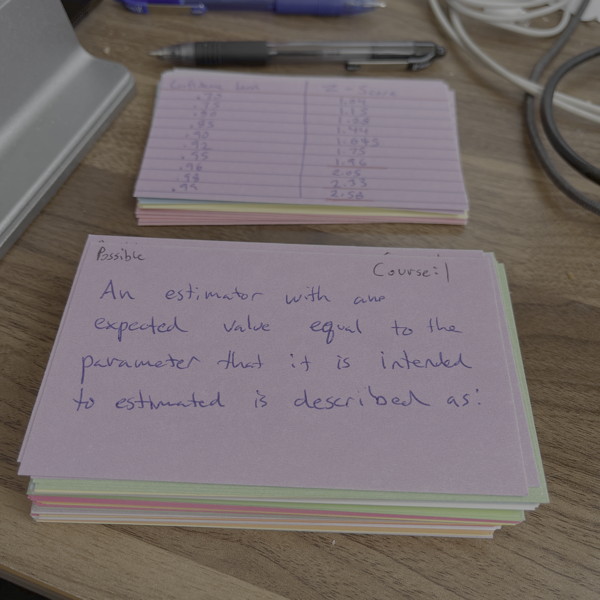 Z-Score
.95
1.96
.96
2.05
.98
2.33
.99
2.58
Possible
Course:1
An estimator with ane
expected value equal to the
parameter that it is intended
to estimated is described as: